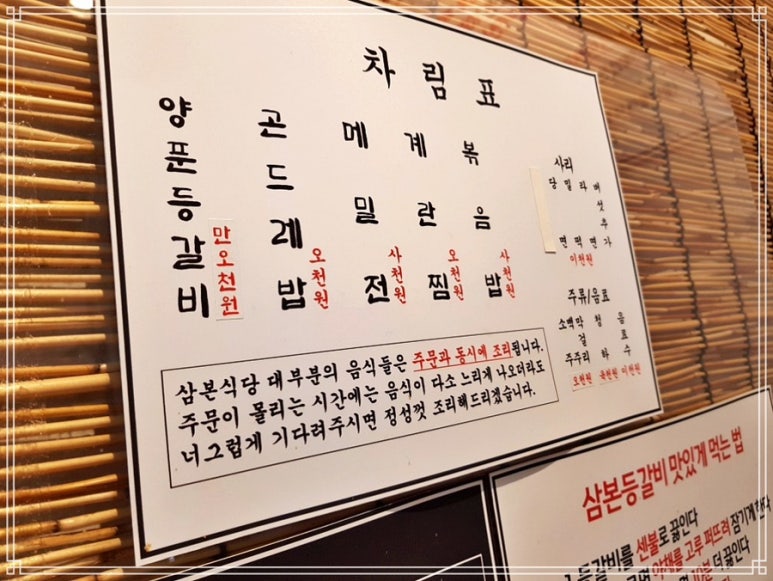 차림표
양푼등갈비 만오천원
곤드레밥 오천원
메밀전 사천원
계란찜 오천원
볶음밥 사천원
사리
당면
밀떡
라면
버섯추가
이천원
주류/음료
소주
맥주
막걸리
청하
음료수
오천원 육천원 이천원
삼본식당 대부분의 음식들은 주문과 동시에 조리됩니다.
주문이 몰리는 시간에는 음식이 다소 느리게 나오더라도
너그럽게 기다려주시면 정성껏 조리해드리겠습니다.
삼본등갈비 맛있게 먹는 법
등갈비를 센불로 끓인다
야채를 고루 퍼뜨려 잠기게 한다
더 끓인다